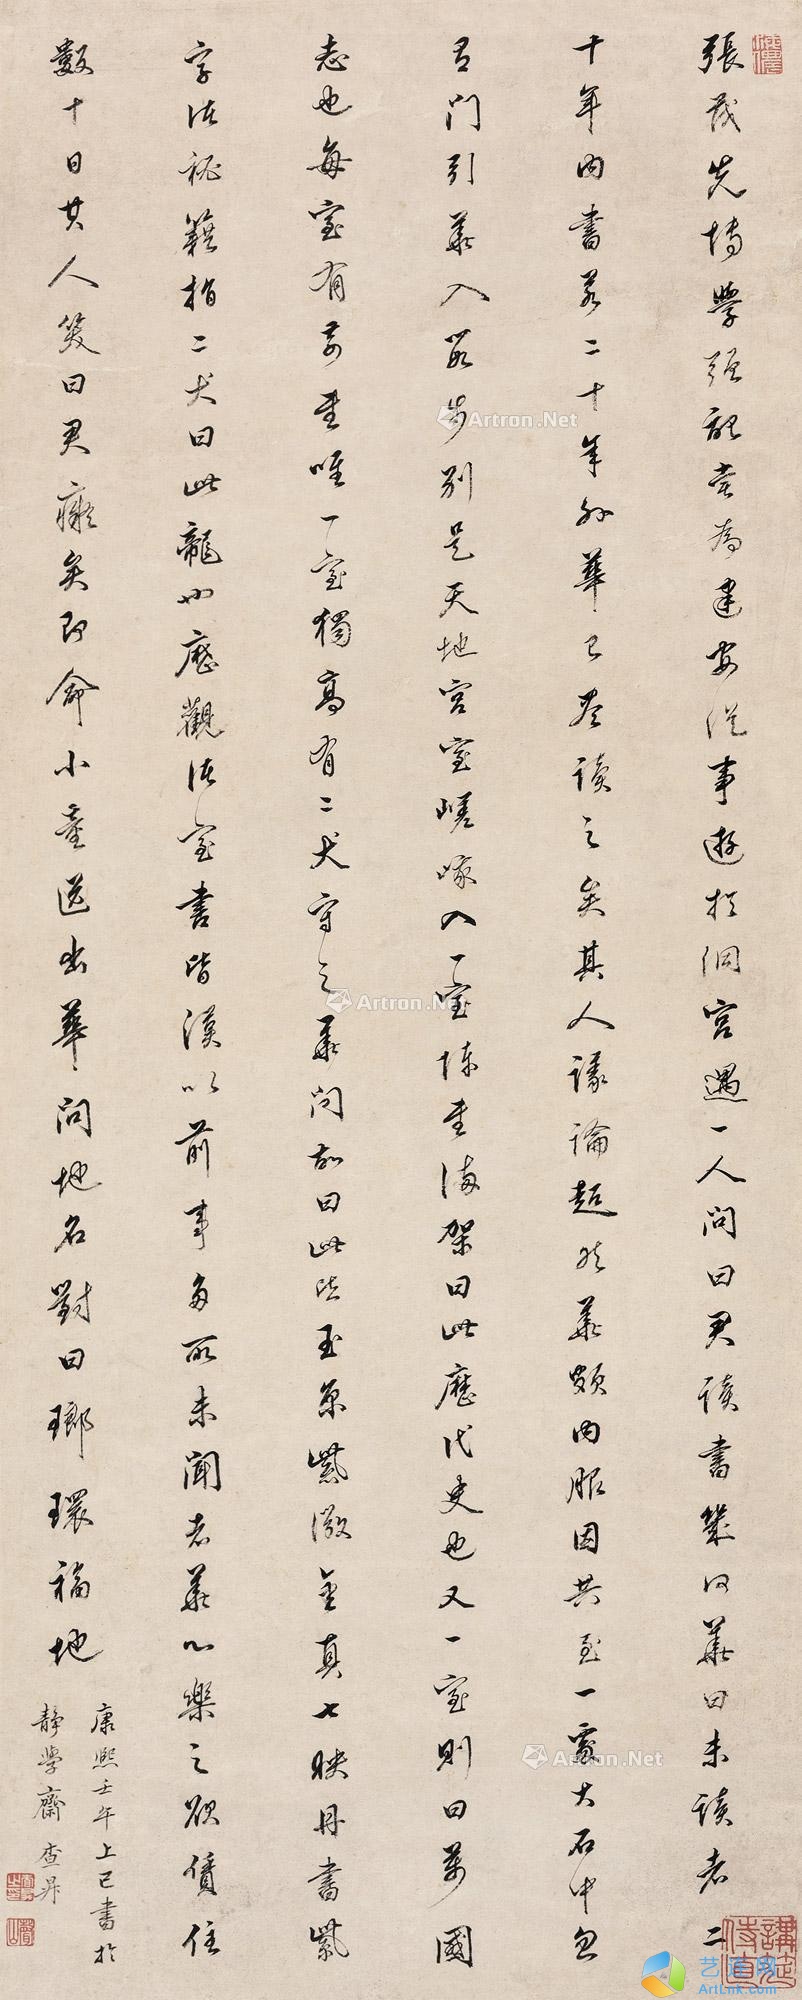 張茂先博學強記嘗為建安從事遊於洞宮遇一人問曰君讀書幾何華曰未讀者二
十年內書若二十年外華已盡讀之矣其人議論超然華頗內服因共至一處大石中忽
有門引華入數步別是天地宮室嵯峨入一室陳書滿架曰此歷代史也又一室則曰萬國
志也每室有奇書唯一室獨高有二犬守之華問故曰此皆玉京紫微金真七暎丹書紫
字諸秘籍指二犬曰此龍也歷觀諸室書皆漢以前事多所未聞者華心樂之欲賃住
數十日其人笑曰君癡矣即命小童送出華問地名對曰瑯環福地
康熙壬午上巳書於
靜學齋 查昇
講筵侍直
Artron.Net
Artron.Net
Artron.Net
Artron.Net
艺道网
ArtLnk.com